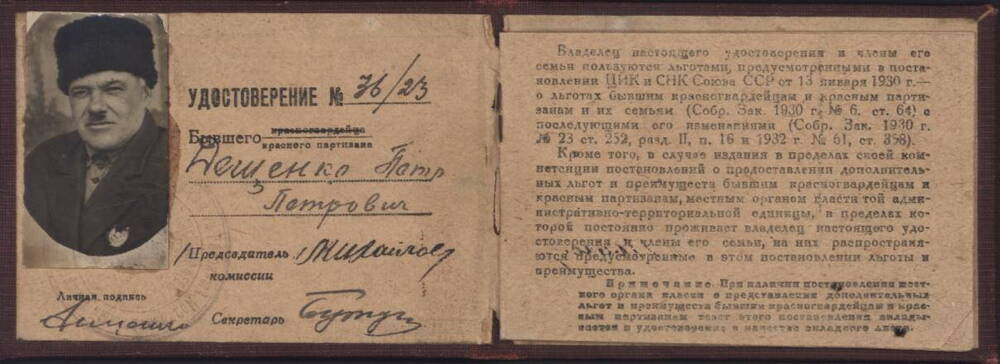 УДОСТОВЕРЕНИЕ № 36/23
Бывшего красногвардейца
красного партизана
Петр
Петрович
Председатель Михайлов
комиссии
Личная подпись
Секретарь
Владелец настоящего удостоверения и члены его
семьи пользуются льготами, предусмотренными в поста-
новлении ЦИК и СНК Союза ССР от 13 января 1930 г.—
о льготах бывшим красногвардейцам и красным парти-
занам и их семьям (Собр. Зак. 1930 г. № 6. ст. 64) с
последующими его изменениями (Собр. Зак. 1930 г.
№ 23 ст. 252, разд. II, п. 16 и 1932 г. № 61, ст. 358).
Кроме того, в случае издания в пределах своей ком-
петенции постановлений о предоставлении дополнитель-
ных льгот и преимуществ бывшим красногвардейцам и
красным партизанам, местным органом власти той адми-
нистративно-территориальной единицы, в пределах ко-
торой постоянно проживает владелец настоящего удо-
стоверения и члены его семьи, на них распространя-
ются предусмотренные в этом постановлении льготы и
преимущества.
Примечание. При наличии постановления мест-
ного органа власти о предоставлении дополнительных
льгот и преимуществ бывшим красногвардейцам и крас-
ным партизанам текст этого постановления вклады-
вается в удостоверение в качестве вкладного листа.